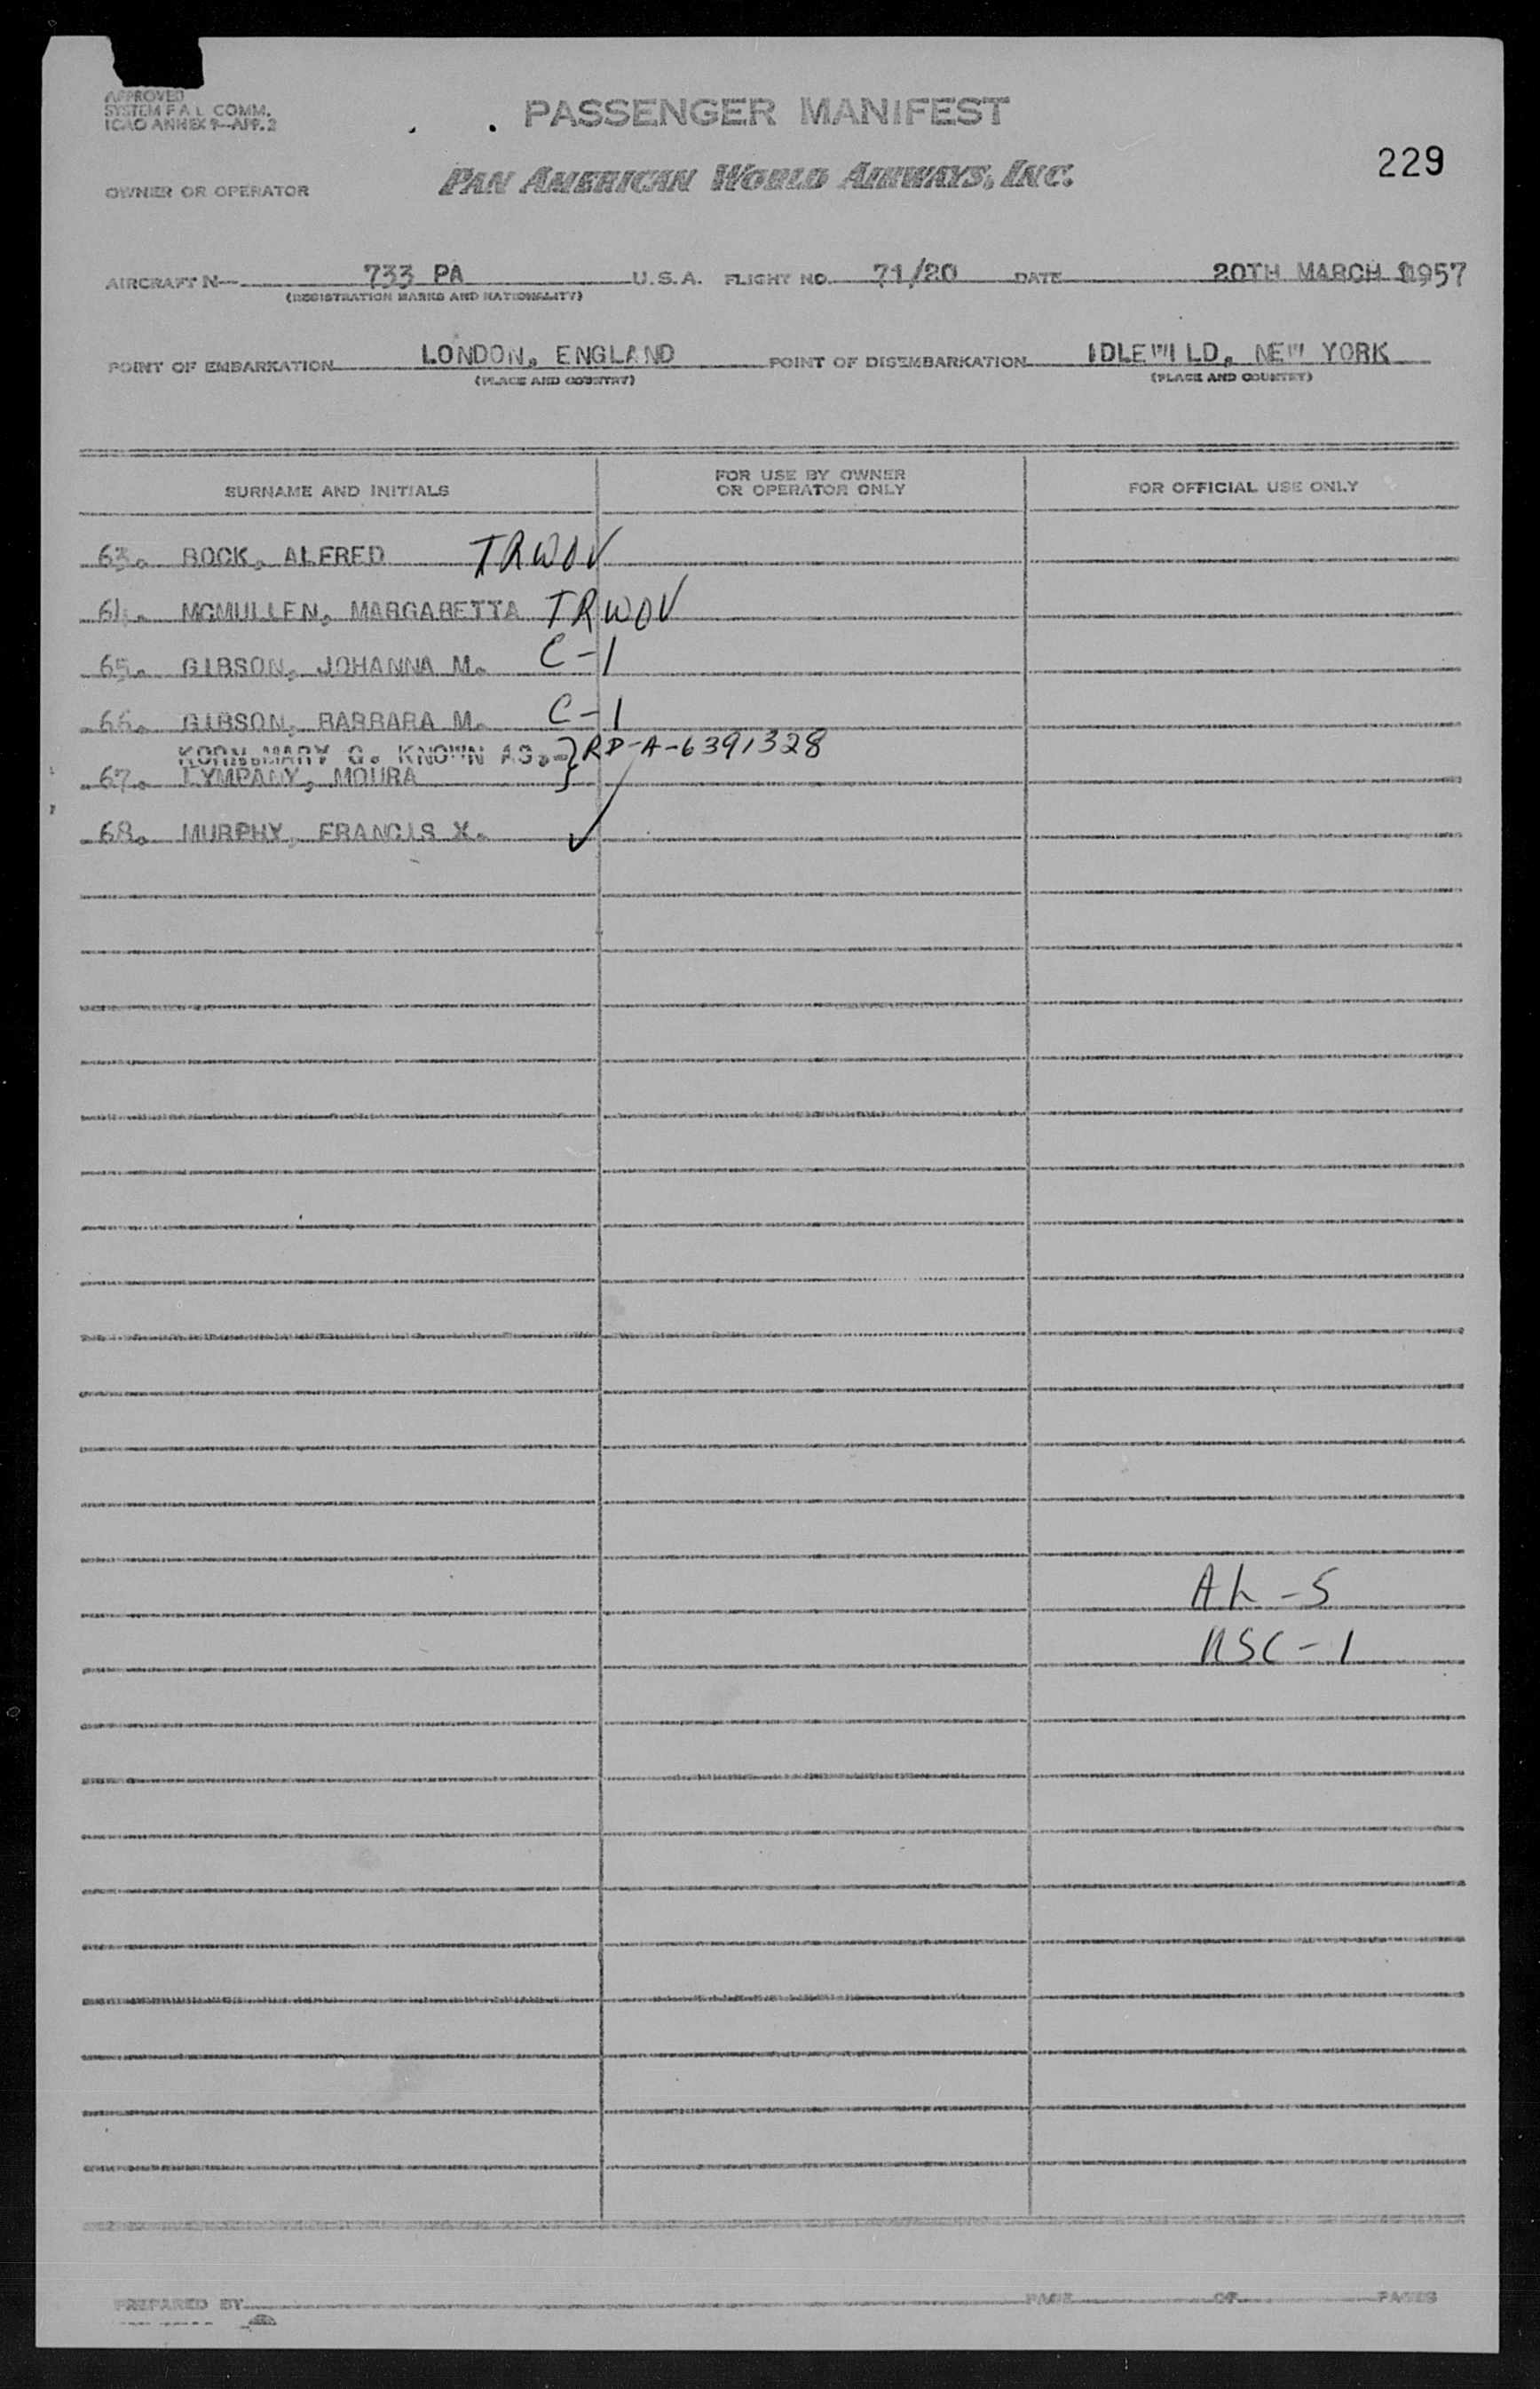 APPROVED
SYSTEM F.A.L. COMM.
ICAO ANNEX 9—APP. 2
PASSENGER MANIFEST
229
OWNER OR OPERATOR PAN AMERICAN WORLD AIRWAYS, INC.
AIRCRAFT N— 733 PA U.S.A. FLIGHT NO. 71/20 DATE 20TH MARCH 1957
(REGISTRATION MARKS AND NATIONALITY)
POINT OF EMBARKATION LONDON, ENGLAND POINT OF DISEMBARKATION IDLEWILD, NEW YORK
(PLACE AND COUNTRY) (PLACE AND COUNTRY)
SURNAME AND INITIALS FOR USE BY OWNER OR OPERATOR ONLY FOR OFFICIAL USE ONLY
63. BOCK, ALFRED TRWOV
64. MCMULLEN, MARGARETTA TRWOV
65. GIBSON, JOHANNA M. C-1
66. GIBSON, BARBARA M. C-1
KORN, MARY G. KNOWN AS.- } RP-A-6391328
67. LYMPANY, MOURA
68. MURPHY, FRANCIS X. ✓
AL-5
USC-1
PREPARED BY PAGE OF PAGES